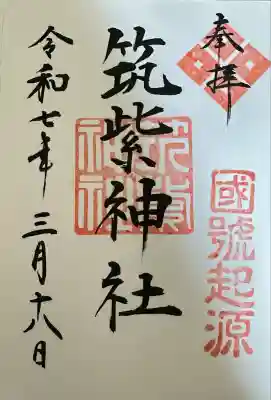 奉拝
國號起源
筑紫神社
令和七年三月十八日